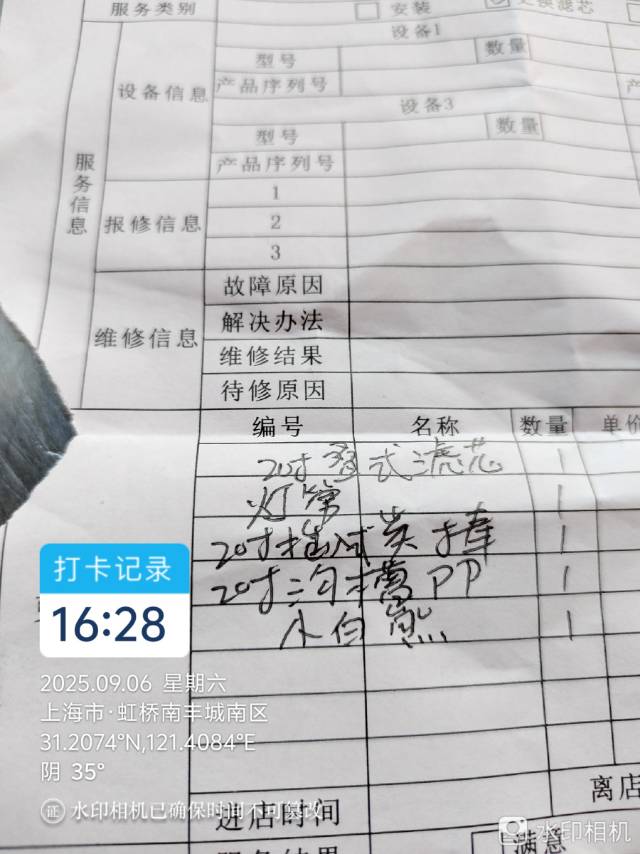 服务类别 安装 更换滤芯
设备1
型号 数量
设备信息 产品序列号 产
设备3
型号 数量
产品序列号
服务信息
1
报修信息 2
3
故障原因
解决办法
维修信息 维修结果
待修原因
编号 名称 数量 单价
20寸叠式滤芯 1
灯管 1
20寸 炭棒 1
20寸沟槽PP 1
小白熊 1
打卡记录
16:28
2025.09.06 星期六
上海市·虹桥南丰城南区
31.2074°N,121.4084°E
阴 35°
证 水印相机已确保时间不可篡改
离店
进店时间
水印相机
服务结果 满意